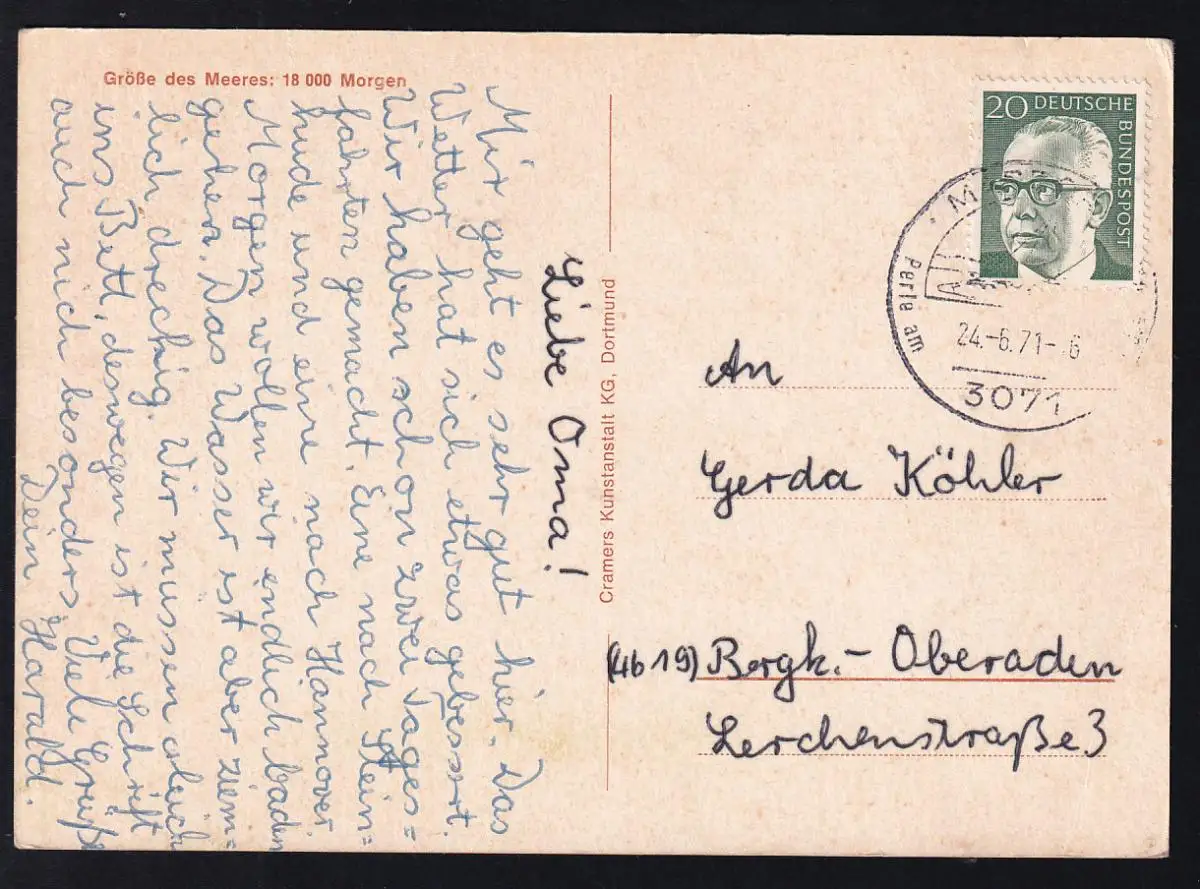 Größe des Meeres: 18 000 Morgen
Liebe Oma!
Mir geht es sehr gut hier. Das
Wetter hat sich etwas gebessert.
Wir haben schon zwei Tages=
fahrten gemacht. Eine nach Stein=
hude und eine nach Hannover.
Morgen wollen wir endlich baden
gehen. Das Wasser ist aber ziem=
lich dreckig. Wir müssen gleich
ins Bett, deswegen ist die Schrift
auch nich besonders. Viele Grüße
Dein Harald.
Cramers Kunstanstalt KG, Dortmund
20 DEUTSCHE
BUNDESPOST
Perle am
24.-6.71-.6
3071
An
Gerda Köhler
(4619) Bergk.- Oberaden
Lerchenstraße 3